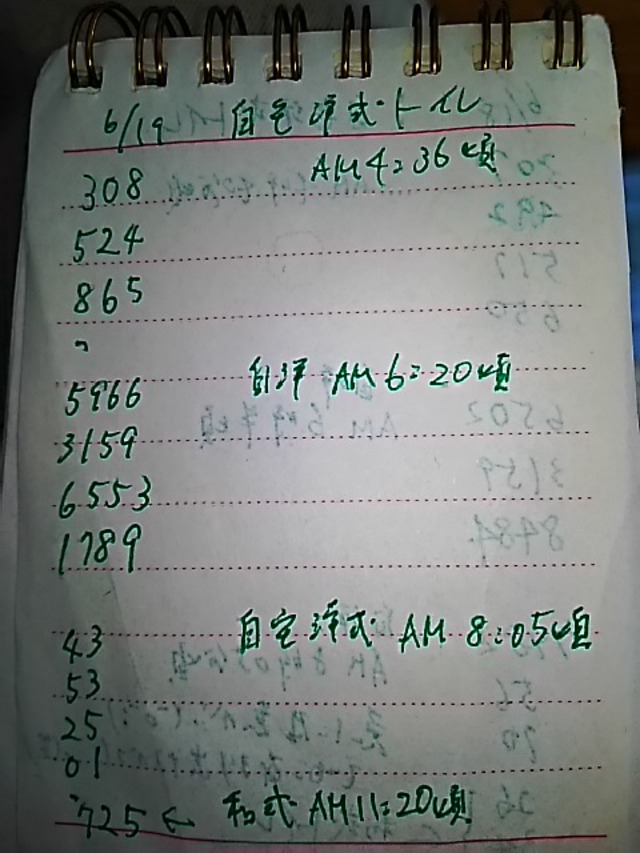 6/19 自宅洋式・トイレ
308 AM4:36頃
524
865
〃
5966 自洋 AM 6:20頃
3159
6553
1789
43 自宅洋式・AM 8:05頃
53
25
01
725 ← 和式・AM11:20頃